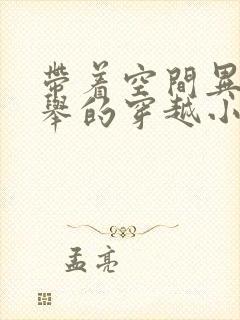 帶着空間異
舉的穿越小
孟亮